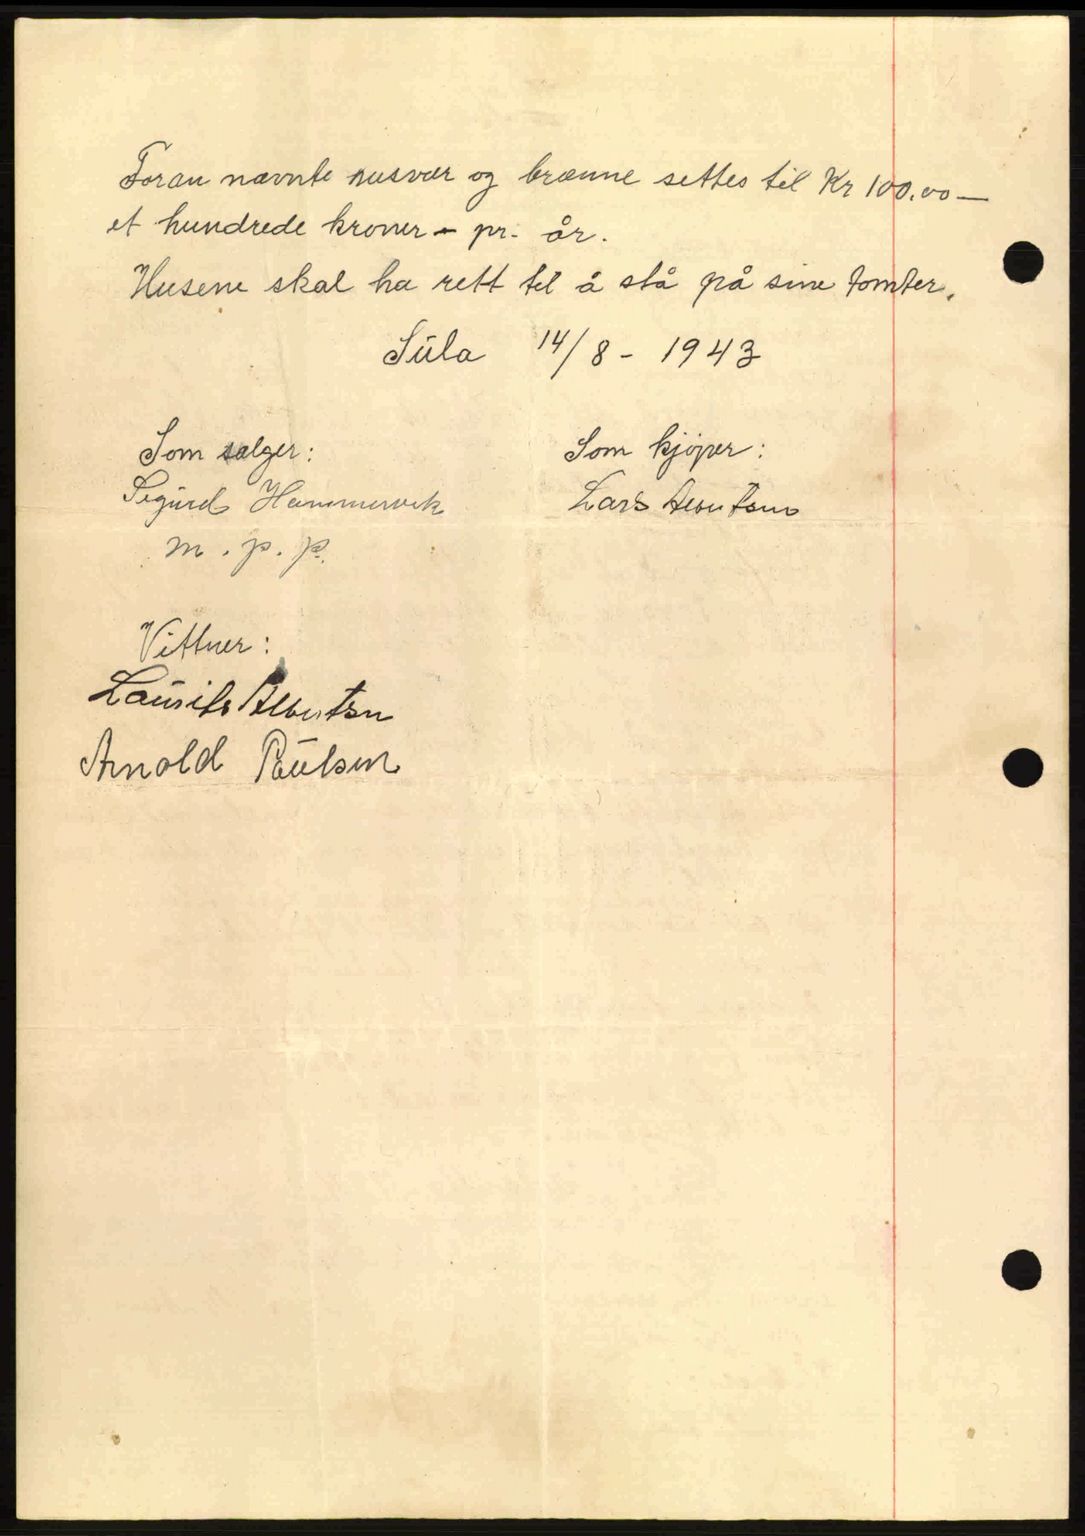 Foran nævnte husvær og brænne settes til Kr 100.00 —
et hundrede kroner - pr. år.
Husene skal ha rett til å stå på sine tomter.
Sula 14/8 - 1943
Som sælger:
Som kjøper:
Sigurd Hammervik
Lars Albertsen
m. p. p.
Vittner:
Laurits Albertsen
Arnold Paulsen